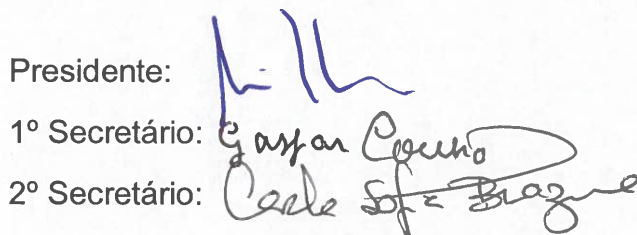 Presidente:
1º Secretário: Gaspar Coelho
2º Secretário: Carla Sofia